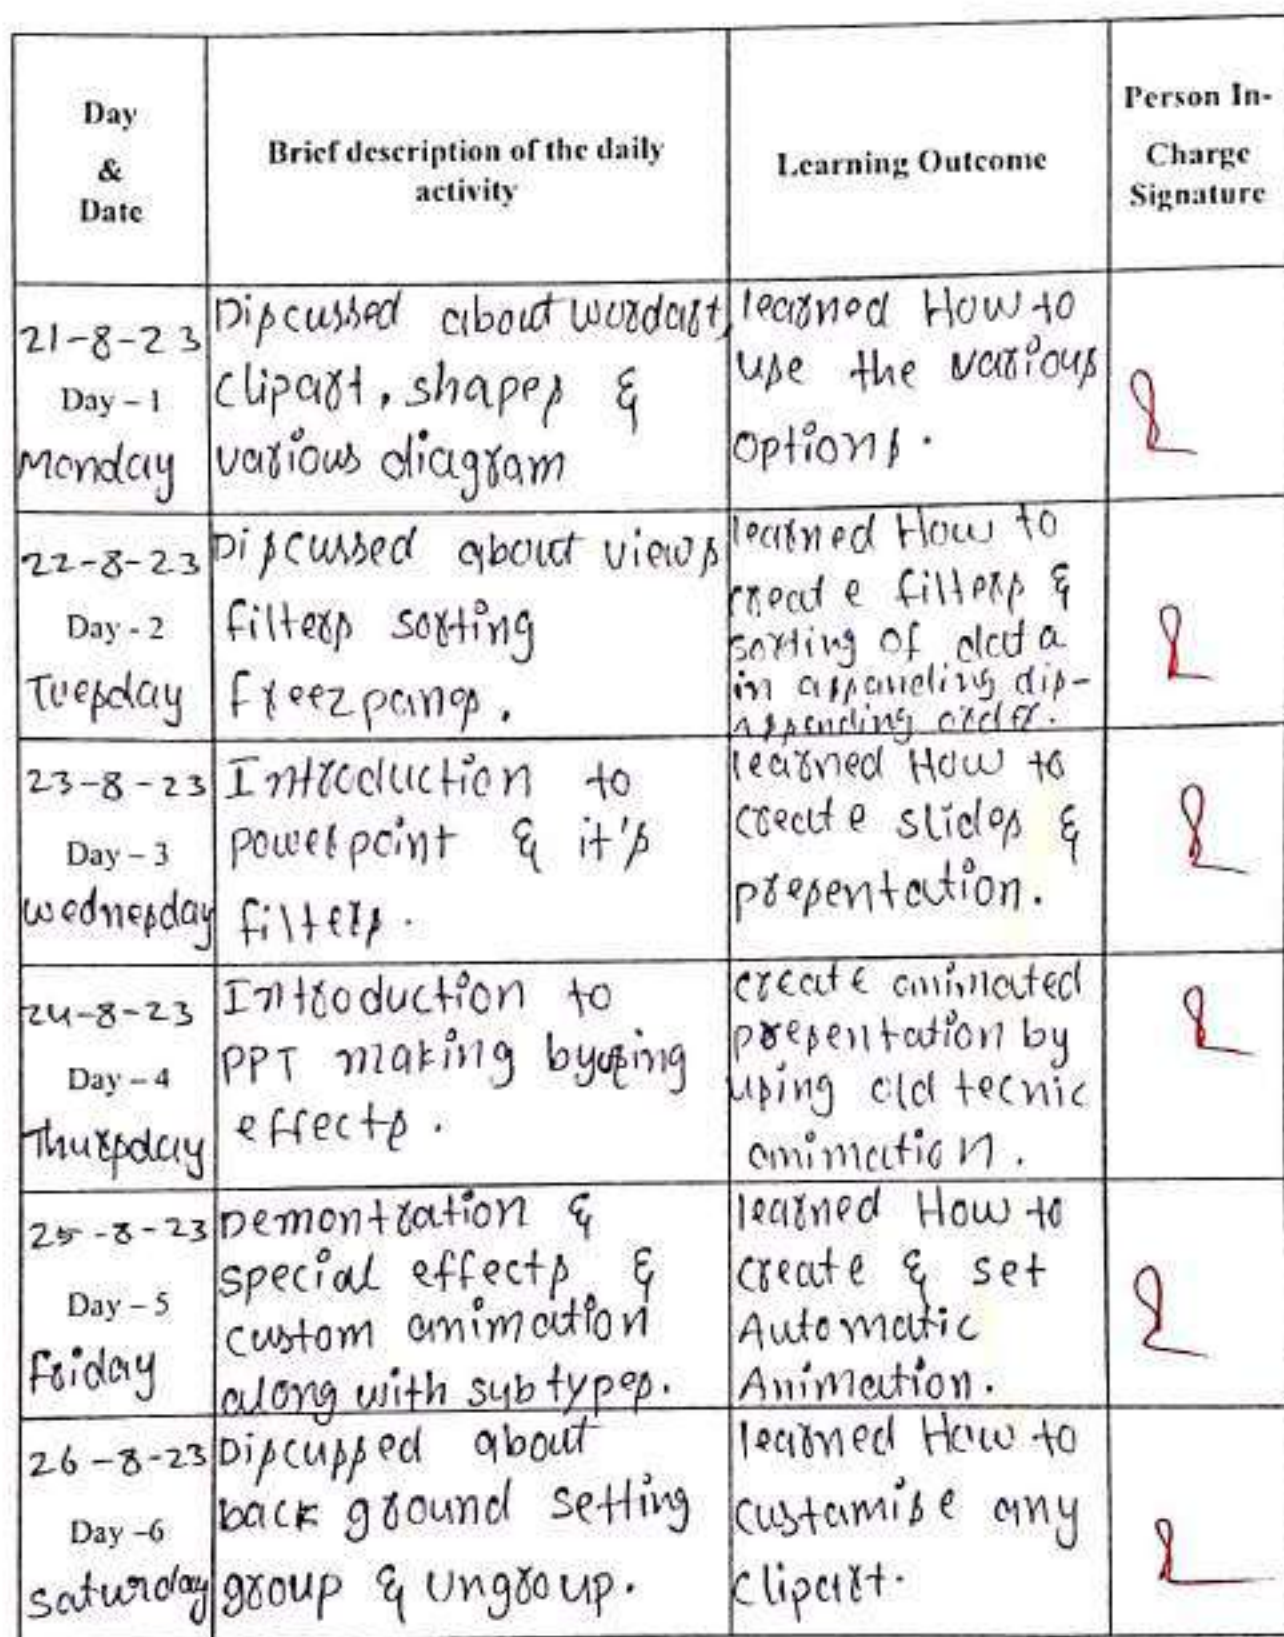 Day
&
Date
Brief description of the daily
activity
Learning Outcome
Person In-
Charge
Signature
21-8-23
Day – 1
Monday
Discussed about wordart,
clipart, shapes &
various diagram
learned How to
use the various
options.
22-8-23
Day - 2
Tuesday
Discussed about views
filters sorting
freez panes.
learned How to
create filters &
sorting of data
in assanding dis-
assending order.
23-8-23
Day – 3
wednesday
Introduction to
powerpoint & it's
filters.
learned How to
create slides &
presentation.
24-8-23
Day – 4
Thursday
Introduction to
PPT making by using
effects.
create animated
presentation by
using old tecnic
animation.
25-8-23
Day – 5
friday
Demontration &
special effects &
custom animation
along with sub types.
learned How to
create & set
Automatic
Animation.
26-8-23
Day -6
saturday
Discussed about
back ground setting
group & ungroup.
learned How to
custamise any
clipart.